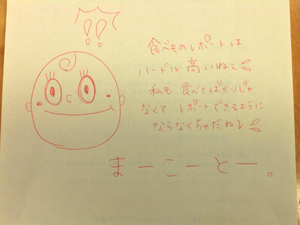 !!
食べものレポートは
ハードル高いねぇ
私も食べてばかりじゃ
なくてレポートできるように
ならなくちゃだねぇ
まーこーとー。